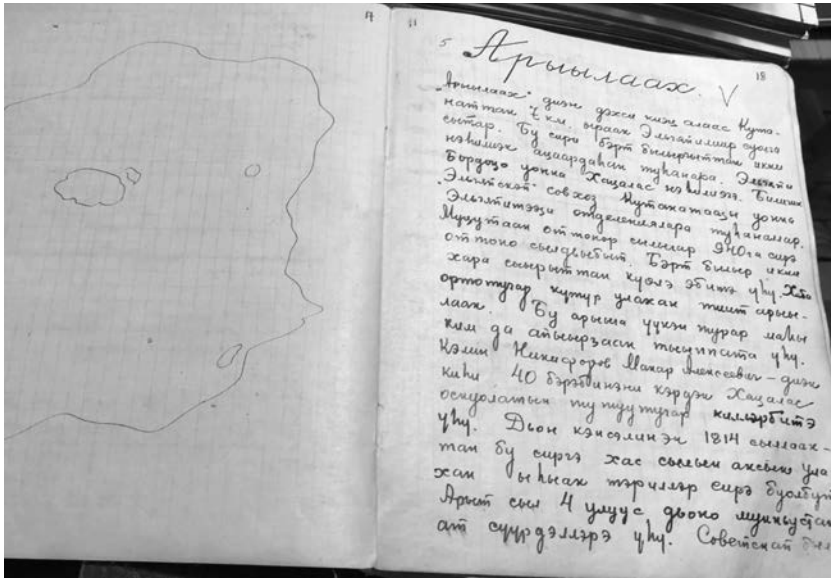 17
11
18
5 Арыылаах. V
"Арыылаах" диэн дэхси киэҥ алаас Кута-
наттан 7 км. ыраах Элгэтиллиир суолга
сытар. Бу сири бэрт былыргыттан икки
нэһилиэк аҥаардаһан туһанара.
Бордоҥо уонна Хаҥалас нэһилиэгэ. Билигин
совхоз Кутанатааҕы уонна
отделениялара туһаналлар.
Муҥутаан оттонор сылыгар 940га сирэ
оттоно сылдьыбыт. Бэрт былыр икки
хара сыырыттан күөлэ эбитэ үһү.
ортотугар күтүр улахан тиит арыы-
лаах. Бу арыыга үүнэн турар маһы
ким да таыыппата үһү.
Кэлин Никифоров Макар Алексеевич – диэн
киһи 40 бэрэбинэни кэрдэн Хаҥалас
оскуолатын тутуутугар киллэрбитэ
үһү. Дьон кэпсэлинэн 1814 сыллаах-
тан бу сиргэ хас сылын аксын ула-
хан ыһыах тэриллэр сирэ буолбут
Арыт сыл 4 улуус дьоно мунньустан
ат сүүрдэллэрэ үһү. Советскай